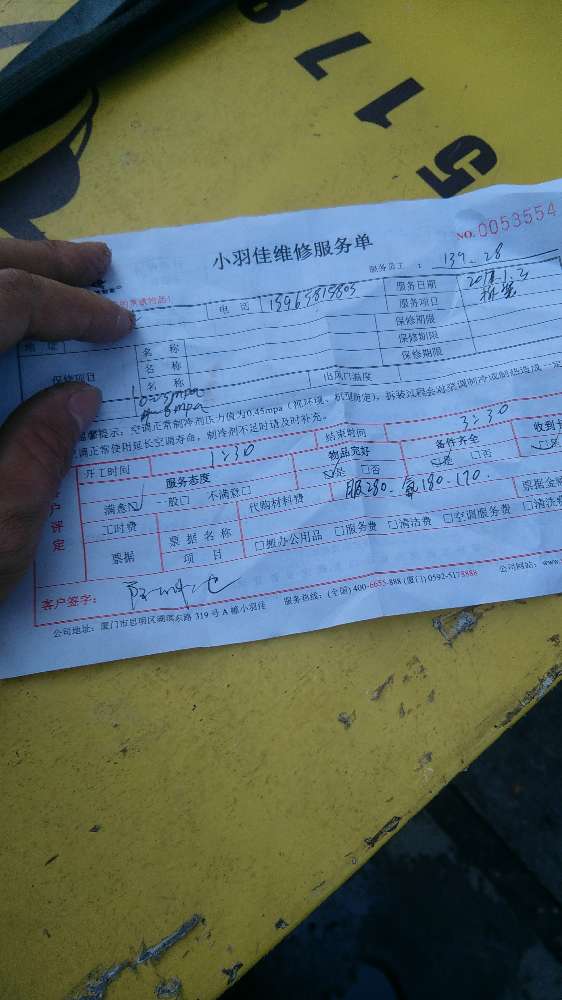 5178
小羽佳维修服务单
NO. 0053554
服务员工： 139_28
电 话 服务日期 2018.1.2
服务项目
保修期限
名 称 保修期限
名 称 保修期限
保修项目 名 称 出风口温度
温馨提示：空调正常制冷剂压力值为0.45mpa（视环境、机型而定），拆装过程会对空调制冷或制热造成一定
调正常使用延长空调寿命，制冷剂不足时请及时补充。
开工时间 1:30 结束时间 3:30
服务态度 物品完好 备件齐全 收到
满意 一般 不满意 是 否 是 否 是
工时费 代购材料费 服280. 氟180. 170.
票据 票据名称 票据金额
项 目 搬办公用品 服务费 清洁费 空调服务费 清洗费
客户签字：
公司地址：厦门市思明区湖滨东路 319 号 A 幢小羽佳 服务热线：(全国) 400-6655-888 (厦门) 0592-5178888 公司网站：www.